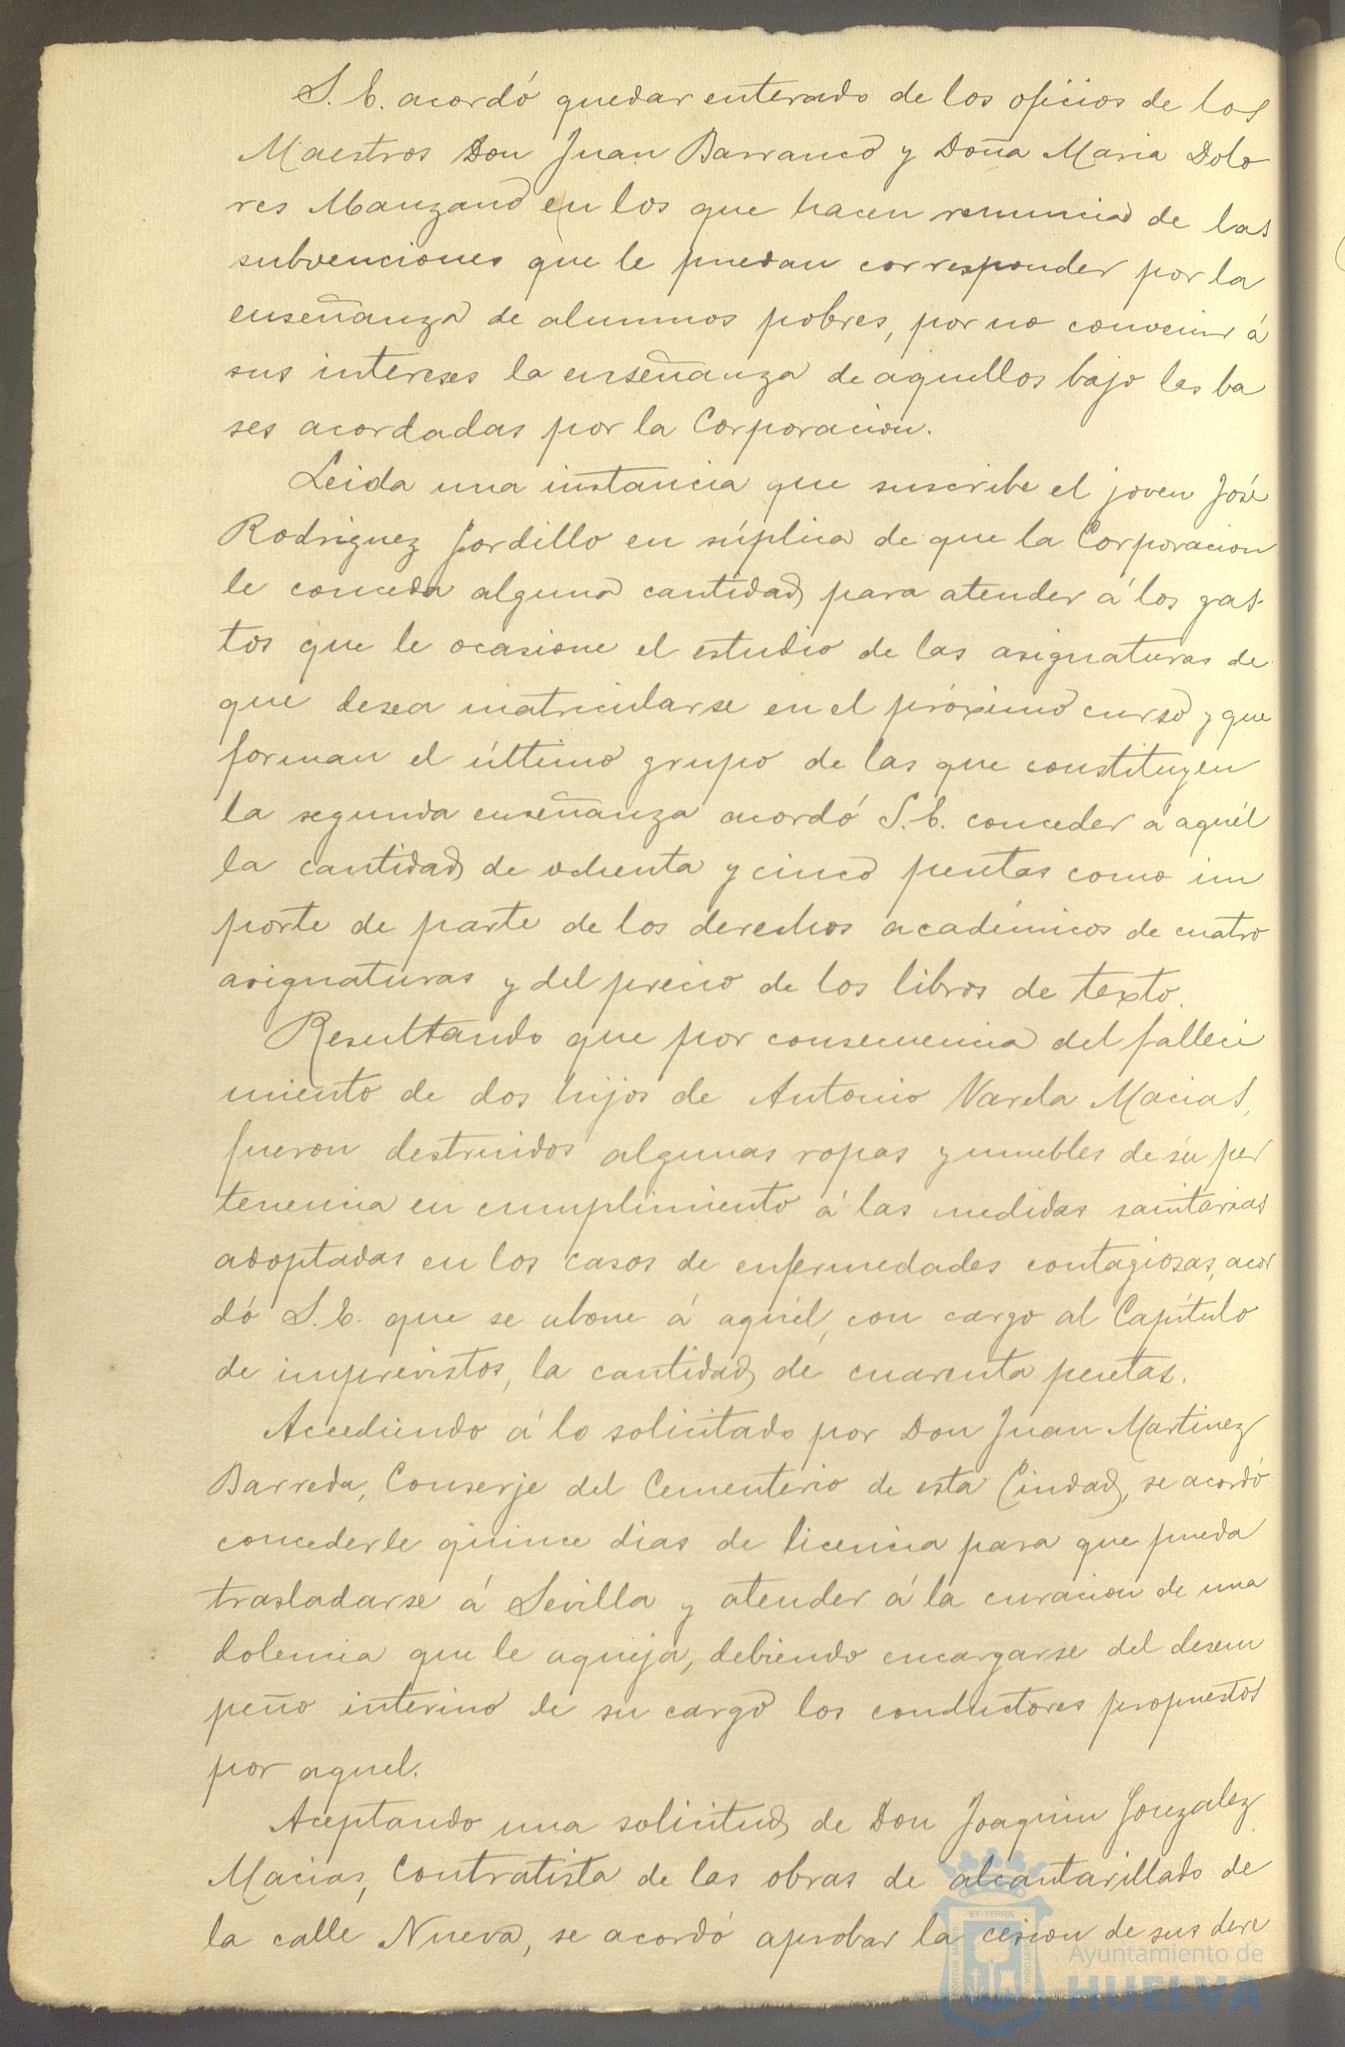 S. E. acordó quedar enterado de los oficios de los
Maestros Don Juan Barranco y Doña Maria Dolo
res Manzano en los que hacen renuncia de las
subvenciones que le puedan corresponder por la
enseñanza de alumnos pobres, por no convenir á
sus intereses la enseñanza de aquellos bajo las ba
ses acordadas por la Corporacion.
Leida una instancia que suscribe el joven José
Rodriguez Gordillo en súplica de que la Corporacion
le conceda alguna cantidad para atender á los gas-
tos que le ocasione el estudio de las asignaturas de
que desea matricularse en el próximo curso y que
forman el último grupo de las que constituyen
la segunda enseñanza acordó S. E. conceder á aquél
la cantidad de ochenta y cinco pesetas como im
porte de parte de los derechos académicos de cuatro
asignaturas y del precio de los libros de texto.
Resultando que por consecuencia del falleci
miento de dos hijos de Antonio Varela Macias,
fueron destruidos algunas ropas y muebles de su per
tenencia en cumplimiento á las medidas sanitarias
adoptadas en los casos de enfermedades contagiosas, acor
dó S. E. que se abone á aquél, con cargo al Capítulo
de imprevistos, la cantidad de cuarenta pesetas.
Accediendo á lo solicitado por Don Juan Martinez
Barreda, Conserje del Cementerio de esta Ciudad, se acordó
concederle quince dias de licencia para que pueda
trasladarse á Sevilla y atender á la curacion de una
dolencia que le aqueja, debiendo encargarse del desem
peño interino de su cargo los conductores propuestos
por aquel.
Aceptando una solicitud de Don Joaquin Gonzalez
Macias, Contratista de las obras de alcantarillado de
la calle Nueva, se acordó aprobar la cesion de sus dere
Ayuntamiento de
HUELVA